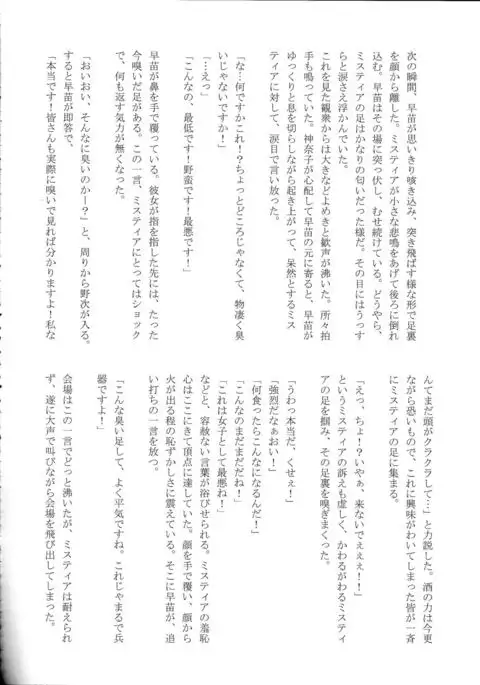 次の瞬間、早苗が思いきり咳き込み、突き飛ばす様な形で足裏
を顔から離した。ミスティアが小さな悲鳴をあげて後ろに倒れ
込む。早苗はその場に突っ伏し、むせ続けている。どうやら、
ミスティアの足はかなりの匂いだった様だ。その目にはうっす
らと涙さえ浮かんでいた。
これを見た観衆からは大きなどよめきと歓声が沸いた。所々拍
手も鳴っていた。神奈子が心配して早苗の元に寄ると、早苗が
ゆっくりと息を切らしながら起き上がって、呆然とするミス
ティアに対して、涙目で言い放った。
「な…何ですかこれ!?ちょっとどころじゃなくて、物凄く臭
いじゃないですか!」
「…えっ」
「こんなの、最低です!野蛮です!最悪です!」
早苗が鼻を手で覆っている。彼女が指を指した先には、たった
今嗅いだ足がある。この一言、ミスティアにとってはショック
で、何も返す気力が無くなった。
「おいおい、そんなに臭いのかー?」と、周りから野次が入る。
すると早苗が即答で、
「本当です!皆さんも実際に嗅いで見れば分かりますよ!私な
んてまだ頭がクラクラして…」と力説した。酒の力は今更
ながら恐いもので、これに興味がわいてしまった皆が一斉
にミスティアの足に集まる。
「えっ、ちょ!?いやぁ、来ないでぇぇぇ!!」
というミスティアの訴えも虚しく、かわるがわるミスティ
アの足を掴み、その足裏を嗅ぎまくった。
「うわっ本当だ、くせぇ!」
「強烈だなぁおい!」
「何食ったらこんなになるんだ!」
「こんなのまだまだだね!」
「これは女子として最悪ね!」
などと、容赦ない言葉が浴びせられる。ミスティアの羞恥
心はここにきて頂点に達していた。顔を手で覆い、顔から
火が出る程の恥ずかしさに震えている。そこに早苗が、追
い打ちの一言を放つ。
「こんな臭い足して、よく平気ですね。これじゃまるで兵
器ですよ!」
会場はこの一言でどっと沸いたが、ミスティアは耐えられ
ず、遂に大声で叫びながら会場を飛び出してしまった。